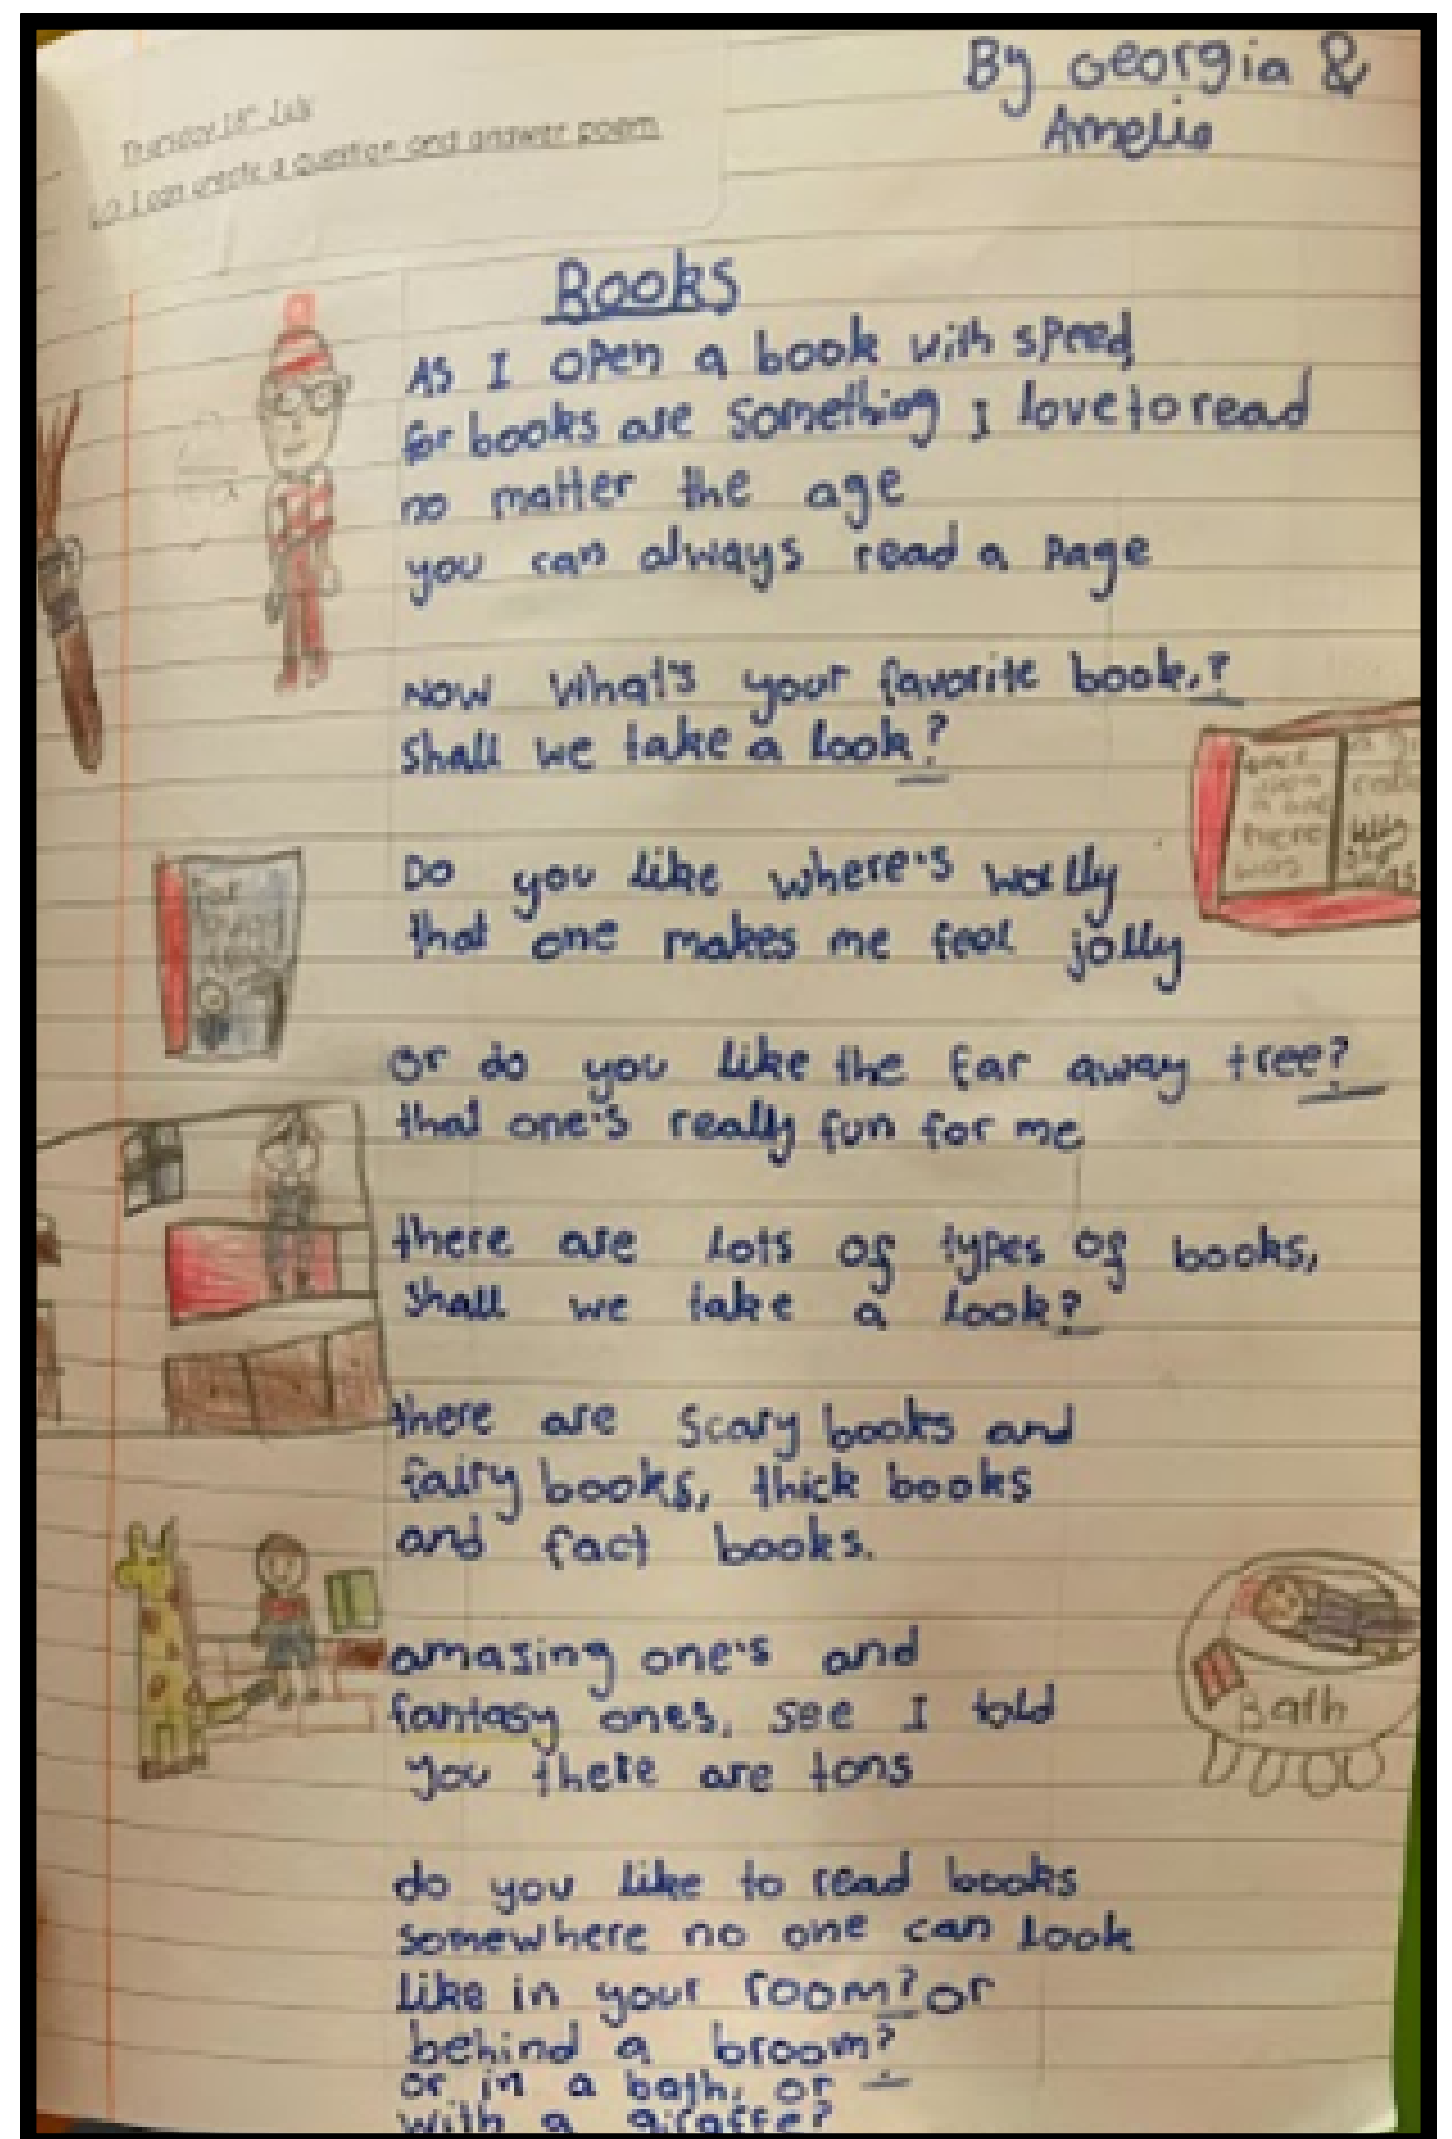 By Georgia &
Amelia
Tuesday 18th July
LO: I can create a question and answer poem
Books
As I open a book with speed,
for books are something I love to read
no matter the age
you can always read a page
Now what's your favorite book,?
Shall we take a look?
Do you like where's wally
that one makes me feel jolly
or do you like the far away tree?
that one's really fun for me
there are lots of types of books,
shall we take a look?
there are scary books and
fairy books, thick books
and fact books.
amazing one's and
fantasy ones, see I told
you there are tons
do you like to read books
somewhere no one can look
like in your room? or
behind a broom?
or in a bath, or
with a giraffe?
far
away
tree
there
was
Bath